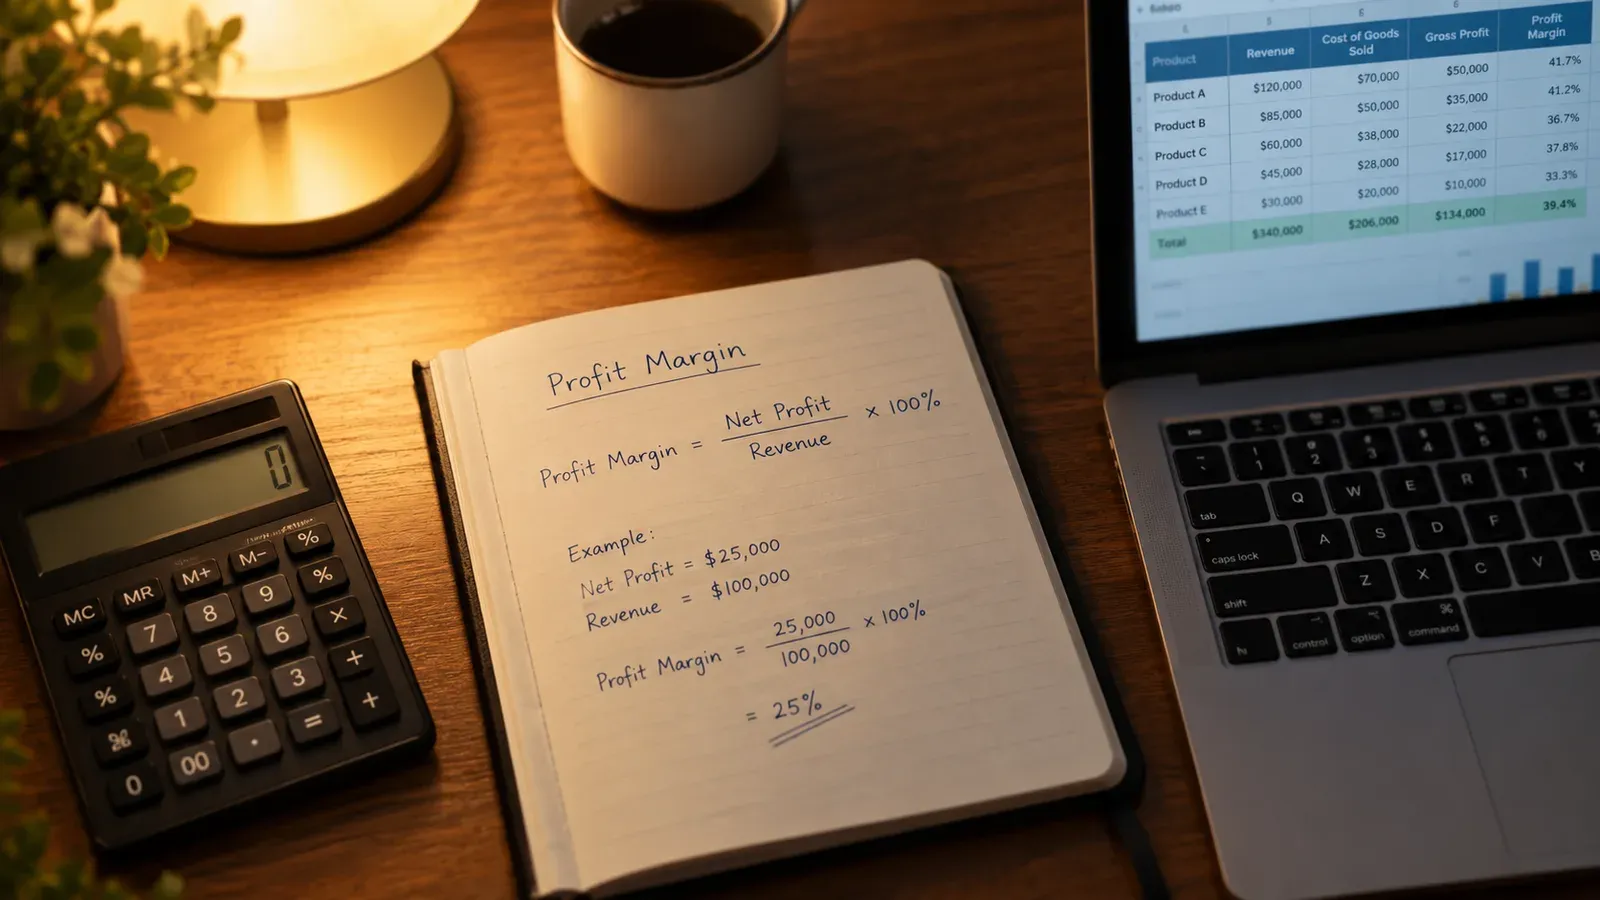 Profit Margin
Profit Margin = Net Profit / Revenue × 100%
Example:
Net Profit = $25,000
Revenue = $100,000
Profit Margin = 25,000 / 100,000 × 100%
= 25%
Product Revenue Cost of Goods Sold Gross Profit Profit Margin
Product A $120,000 $70,000 $50,000 41.7%
Product B $85,000 $50,000 $35,000 41.2%
Product C $60,000 $38,000 $22,000 36.7%
Product D $45,000 $28,000 $17,000 37.8%
Product E $30,000 $20,000 $10,000 33.3%
Total $340,000 $206,000 $134,000 39.4%
0
MC MR M+ M− %
% 7 8 9 %
% 4 5 6 ×
1 2 3 +
0 00 . = +
1 2 3 4 5 6
tab Q W E R T Y
caps lock A S D F
shift Z X C V B
control option command